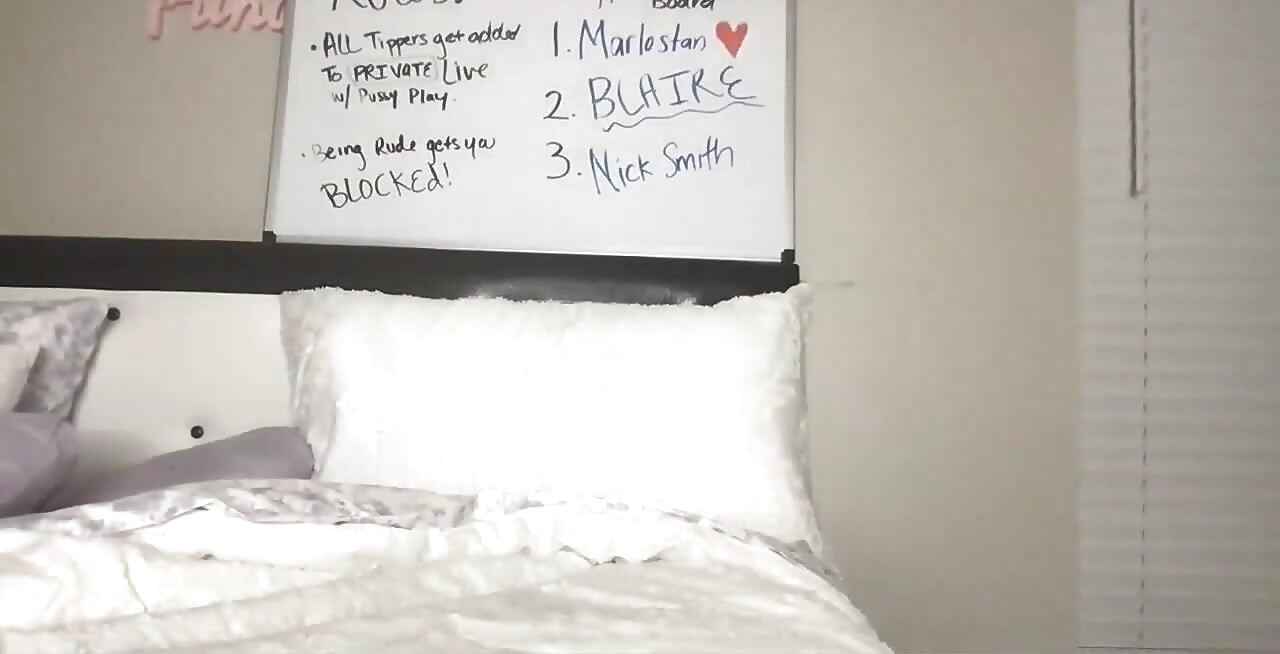 • ALL Tippers get added
To PRIVATE Live
w/ Pussy Play.
• Being Rude gets you
BLOCKEd!
Board
1. Marlostan ❤
2. BLAIRE
3. Nick Smith